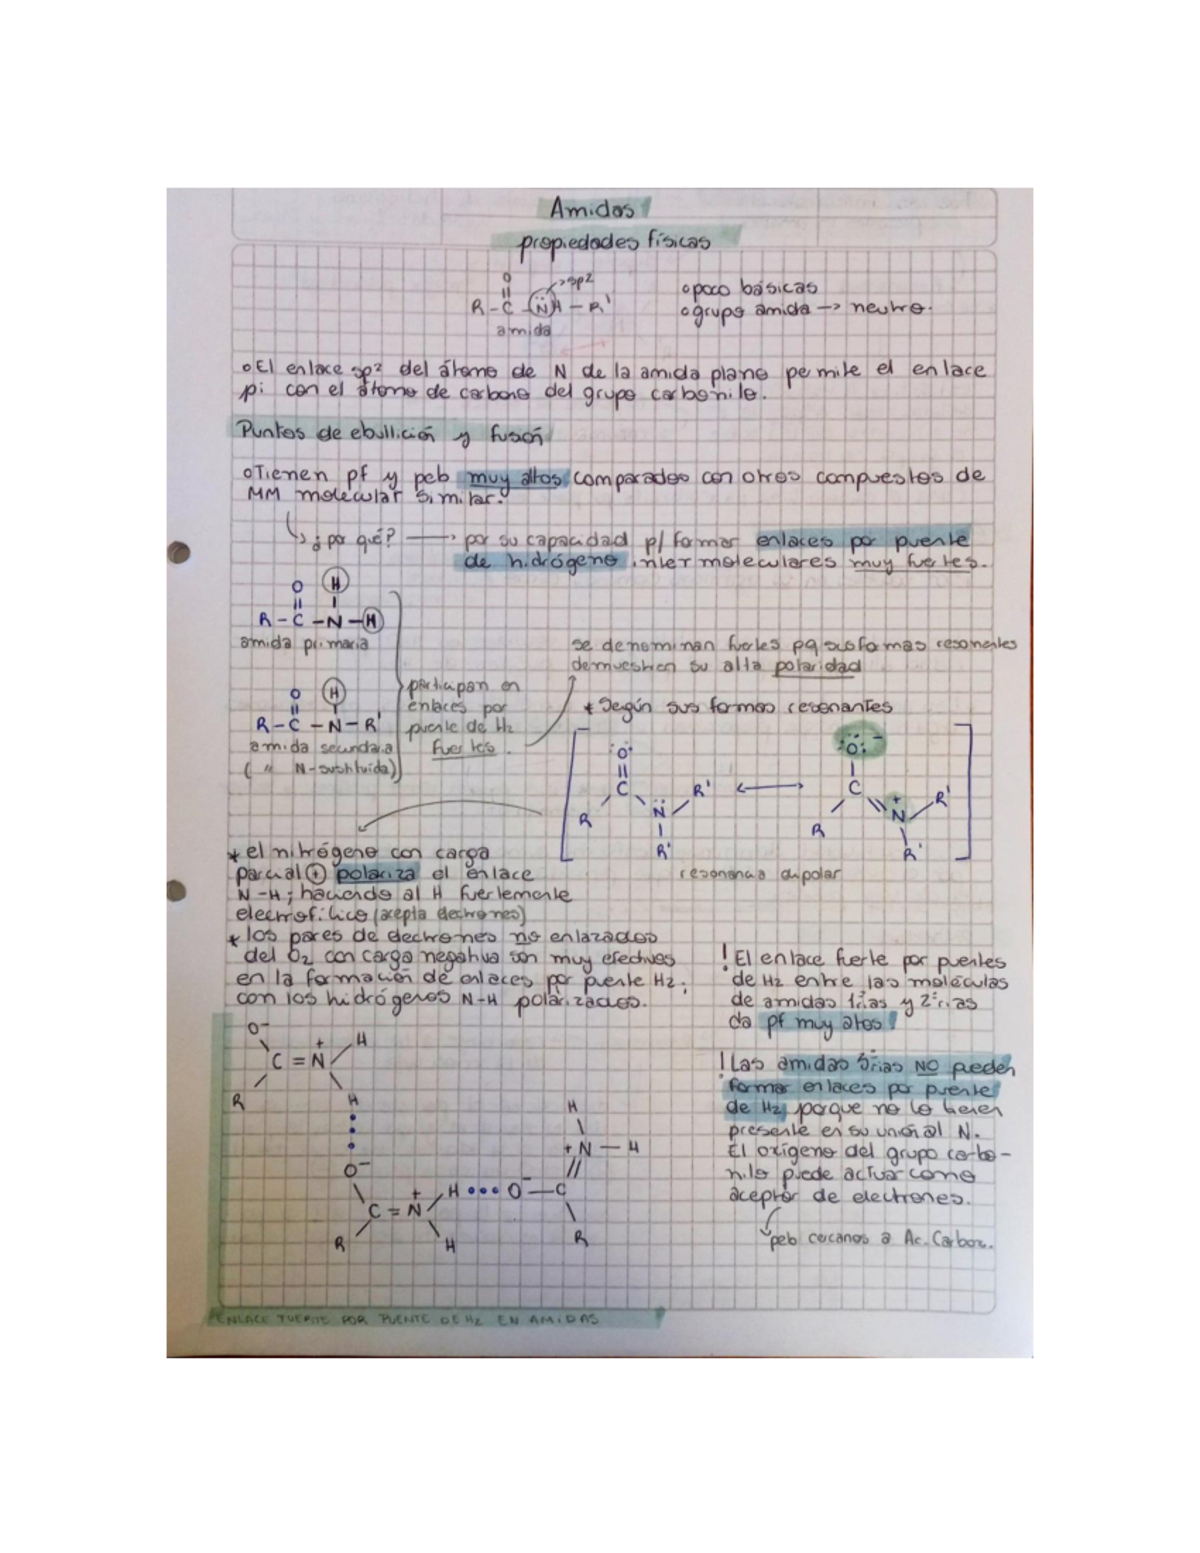 Amidas
propiedades físicas
O
R - C - N̈H - R' → sp2
amida
o poco básicas
o grupo amida → neutro.
o El enlace sp² del átomo de N de la amida plano permite el enlace
pi con el átomo de carbono del grupo carbonilo.
Puntos de ebullición y fusión
o Tienen pf y peb muy altos comparados con otros compuestos de
MM molecular similar.
↳ ¿por qué? → por su capacidad p/ formar enlaces por puente
de hidrógeno intermoleculares muy fuertes.
O H
R - C - N - H
amida primaria
O H
R - C - N - R'
amida secundaria
( " N-sustituida)
participan en
enlaces por
puente de H2
fuertes.
se denominan fuertes pq sus formas resonantes
demuestran su alta polaridad
* Según sus formas resonantes
:O:
C
R N̈ R'
R'
:Ö: -
C
R N + R'
R'
resonancia dipolar
* el nitrógeno con carga
parcial ⊕ polariza al enlace
N-H; haciendo al H fuertemente
electrofílico (acepta electrones)
* los pares de electrones no enlazados
del O2 con carga negativa son muy efectivos
en la formación de enlaces por puente H2;
con los hidrógenos N-H polarizados.
! El enlace fuerte por puentes
de H2 entre las moléculas
de amidas 1rias y 2rias
da pf muy altos!
! Las amidas 3rias NO pueden
formar enlaces por puente
de H2 porque no lo tienen
presente en su unión al N.
El oxígeno del grupo carbo-
nilo puede actuar como
aceptor de electrones.
peb cercanos a Ac. Carbox.
O-
+ H
C = N
R
H
H
O-
+N - H
+ H ••• O- - C
C = N
R H R
ENLACE FUERTE POR PUENTE DE H2 EN AMIDAS